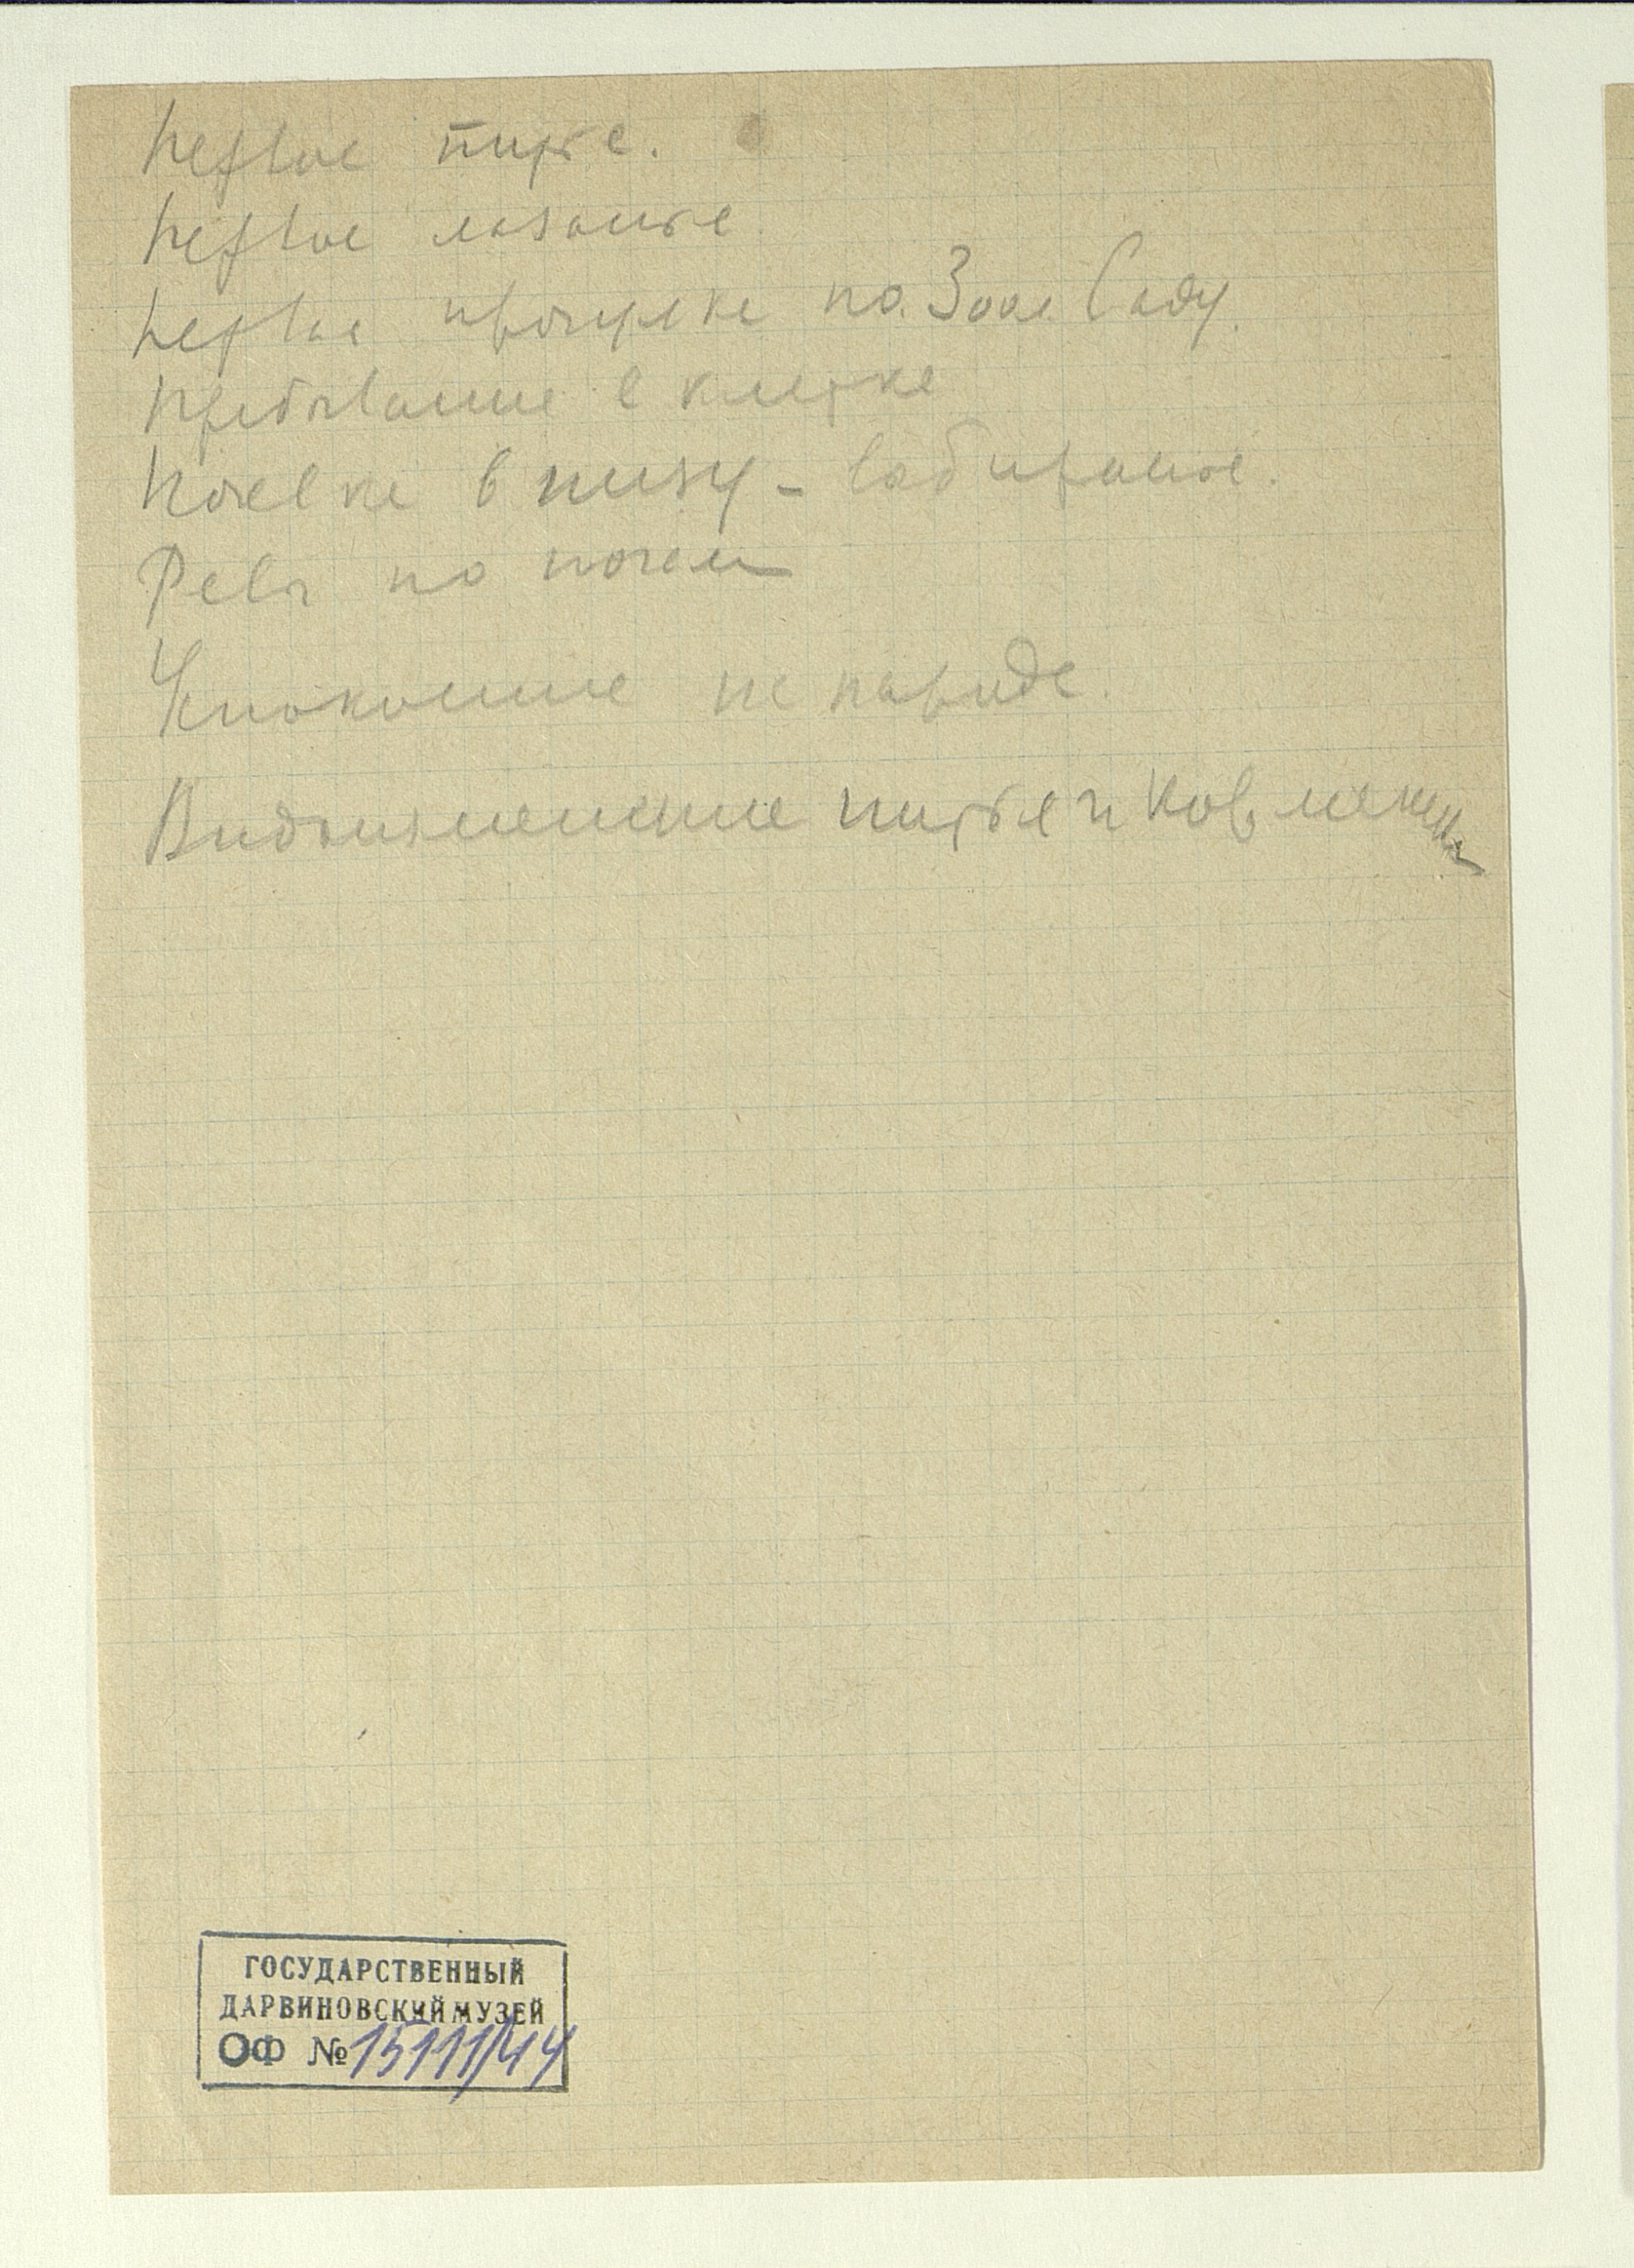 Первое питье.
Первое лазанье
Первая прогулка по Зоол. Саду.
Пребывание в клетке
Ночевка внизу - взбиранье.
Рев по ночам
Успокоение на народе.
Видоизменение питья и кормлен
ГОСУДАРСТВЕННЫЙ
ДАРВИНОВСКИЙ МУЗЕЙ
ОФ № 15111/44